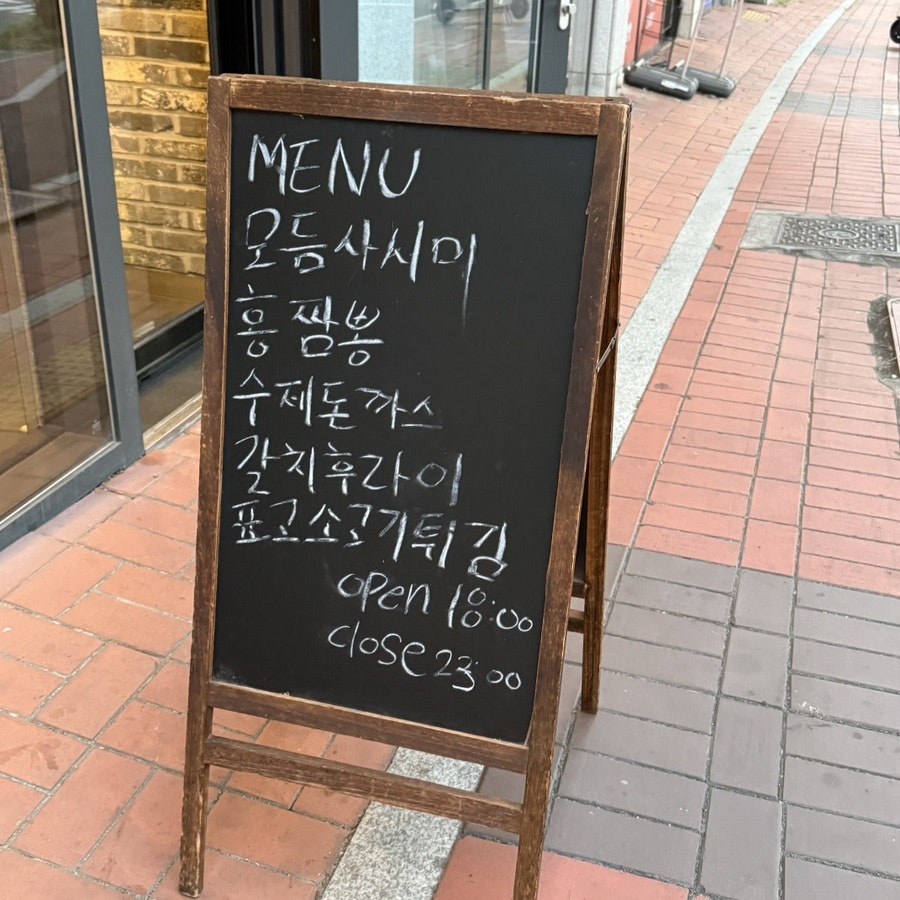 MENU
모듬사시미
홍짬뽕
수제돈까스
갈치후라이
표고소고기튀김
open 18:00
close 23:00